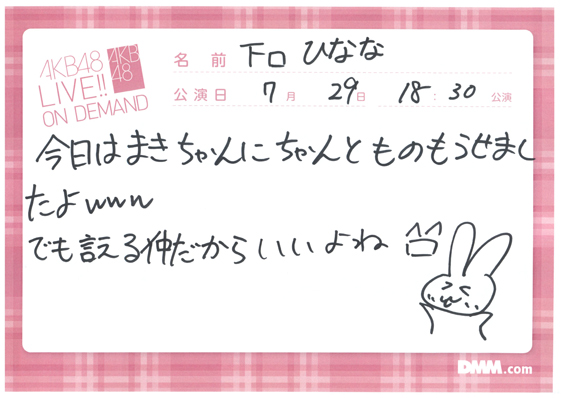 AKB48
LIVE!!
ON DEMAND
AKB
48
名前 下口 ひなな
公演日 7月 29日 18:30 公演
今日はまきちゃんにちゃんとものもうせまし
たよwww
でも言える仲だからいいよね
DMM.com